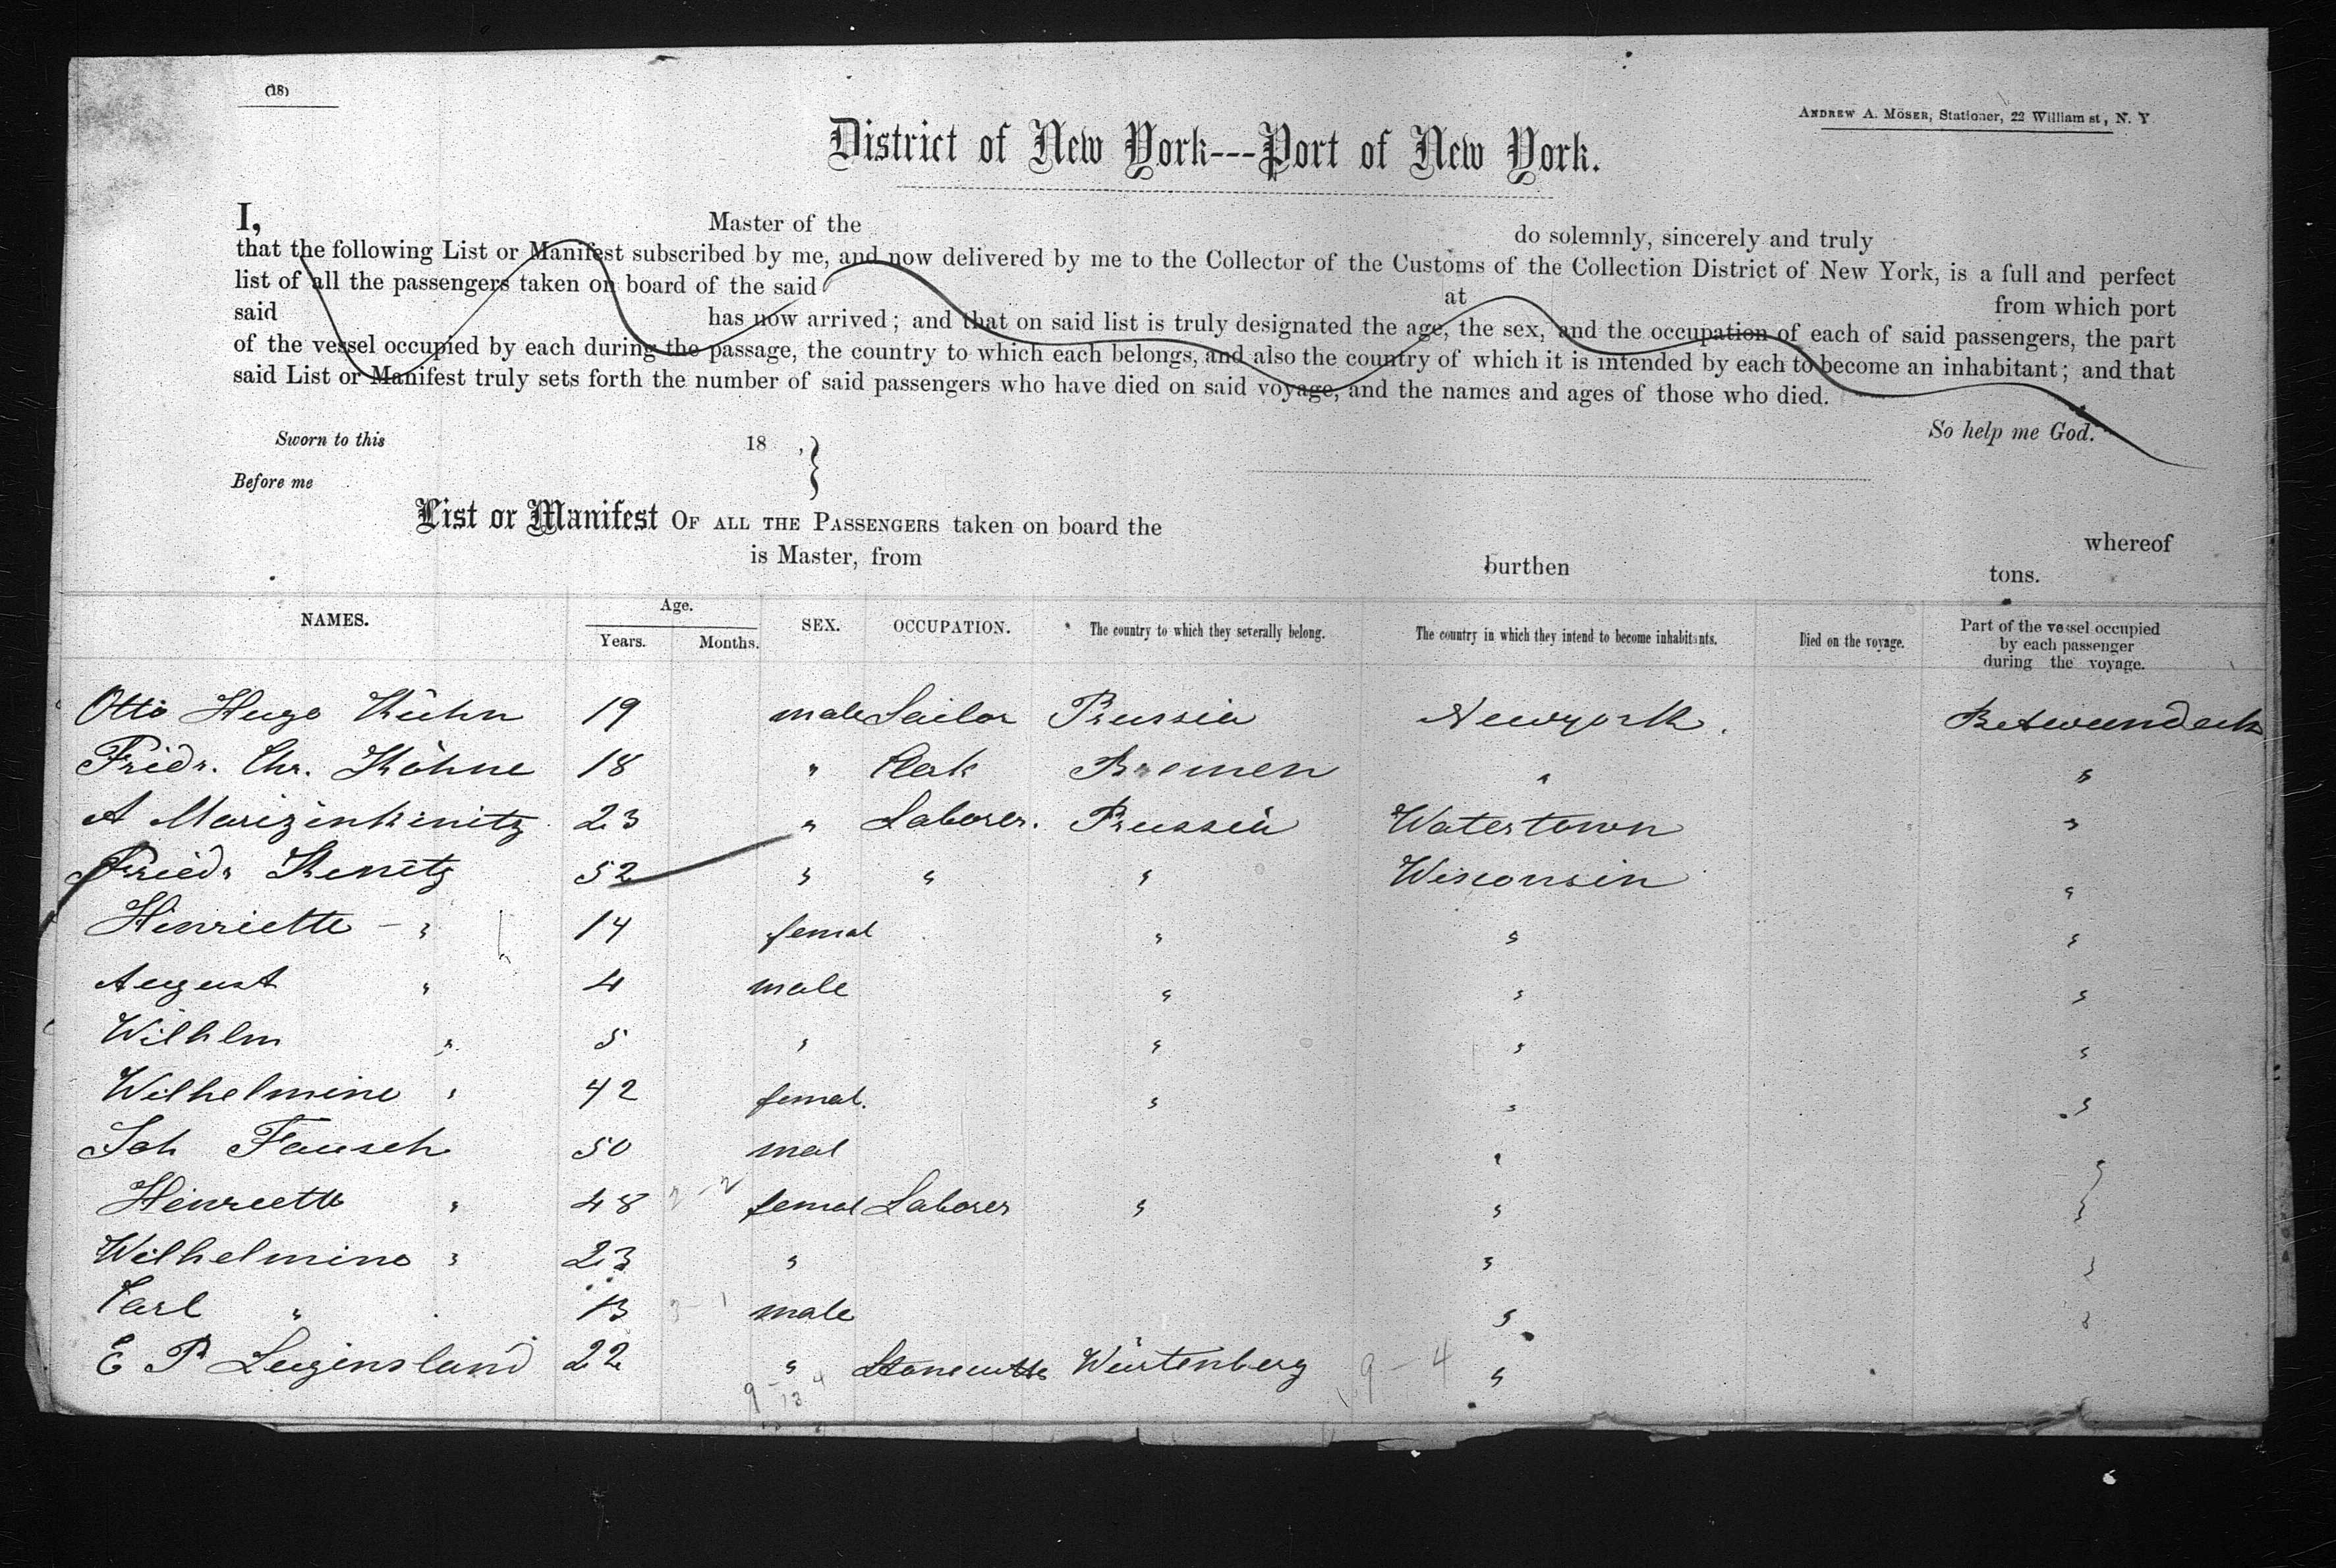 (18)
ANDREW A. MÖSER, Stationer, 22 William st, N. Y
District of New York---Port of New York.
I, Master of the do solemnly, sincerely and truly
that the following List or Manifest subscribed by me, and now delivered by me to the Collector of the Customs of the Collection District of New York, is a full and perfect
list of all the passengers taken on board of the said at from which port
said has now arrived; and that on said list is truly designated the age, the sex, and the occupation of each of said passengers, the part
of the vessel occupied by each during the passage, the country to which each belongs, and also the country of which it is intended by each to become an inhabitant; and that
said List or Manifest truly sets forth the number of said passengers who have died on said voyage, and the names and ages of those who died.
So help me God.
Sworn to this 18 ,
Before me
List or Manifest OF ALL THE PASSENGERS taken on board the whereof
is Master, from burthen tons.
NAMES. Age. Years. Months. SEX. OCCUPATION. * The country to which they severally belong. The country in which they intend to become inhabitants. Died on the voyage. Part of the vessel occupied by each passenger during the voyage.
Otto Hugo Kühn 19 male Sailor Prussia Newyork. Betweendeck
Fridr. Chr. Köhne 18 " Clerk Bremen " "
A 23 " Laborer. Prussia Watertown "
Friedr Kenitz 52 " " " Wisconsin "
Henriette - " 14 femal " " "
August " 4 male " " "
Wilhelm " 5 " " " "
Wilhelmine " 42 femal. " " "
Joh Fausch 50 mal " "
Henriette " 48 femal Laborer " " "
Wilhelmine " 23 " " "
Carl " 13 male " "
E P Luginsland 22 " Stonecutter Würtenberg 9 - 4 "